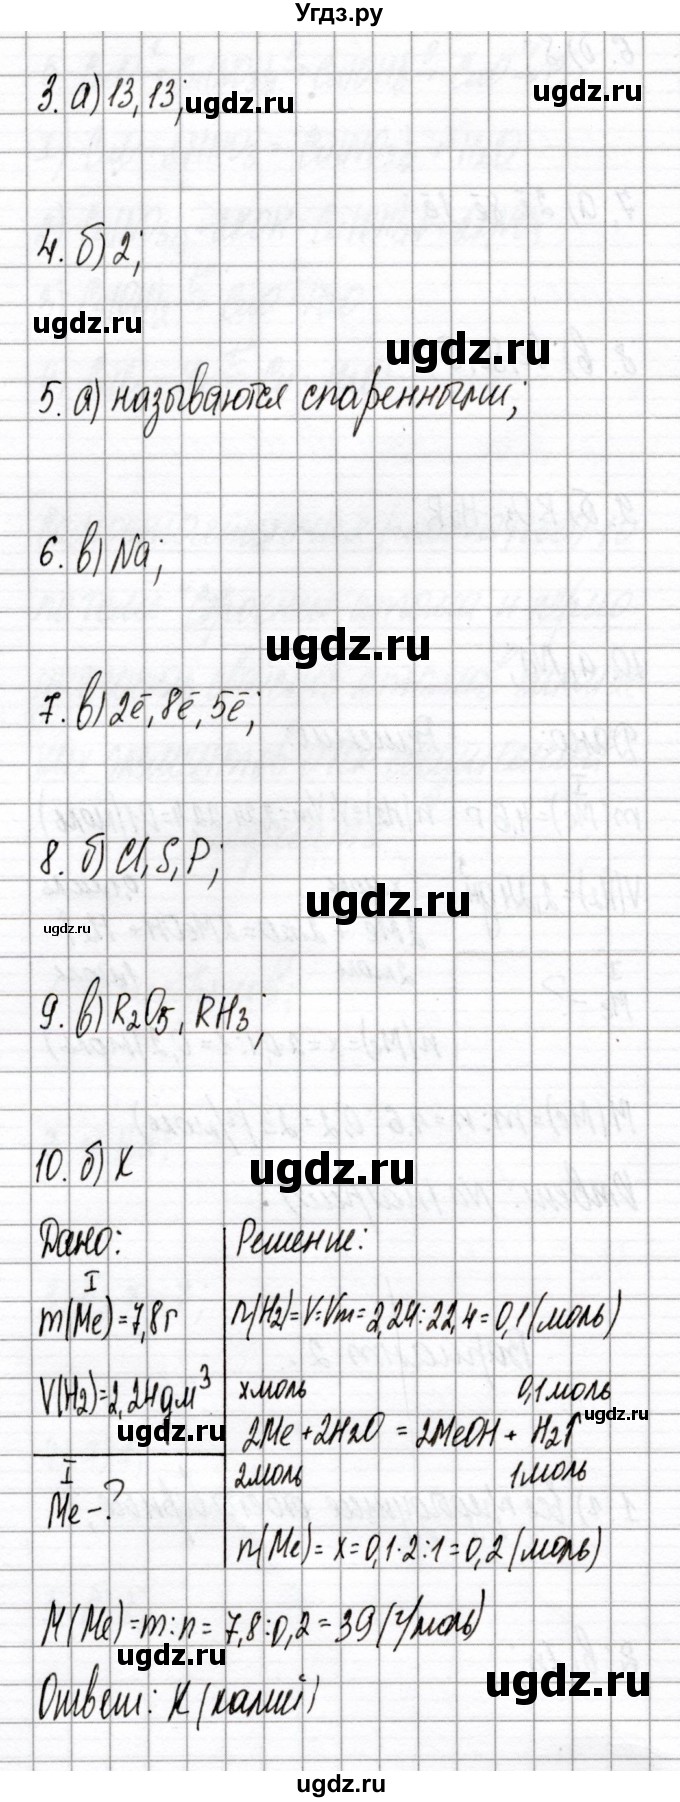 Угдз.ру
ugdz.ru
3. а) 13, 13;
ugdz.ru
4. б) 2;
ugdz.ru
ugdz.ru
5. а) называются спаренными;
6. в) Na;
ugdz.ru
7. в) 2ē, 8ē, 5ē;
8. б) Cl, S, P;
ugdz.ru
ugdz.ru
9. в) R₂O₅, RH₃;
10. б) K
ugdz.ru
Дано:
I
m(Me)=7,8г
V(H₂)=2,24дм³
ugdz.ru
I
Me – ?
Решение:
n(H₂)=V:Vm=2,24:22,4=0,1(моль)
x моль 0,1 моль
ugdz.ru
2Me + 2H₂O = 2MeOH + H₂↑
2 моль 1 моль
n(Me) = x = 0,1·2:1 = 0,2 (моль)
M(Me)=m:n= 7,8:0,2 = 39 (г/моль)
ugdz.ru
ugdz.ru
Ответ: K (калий)
ugdz.ru